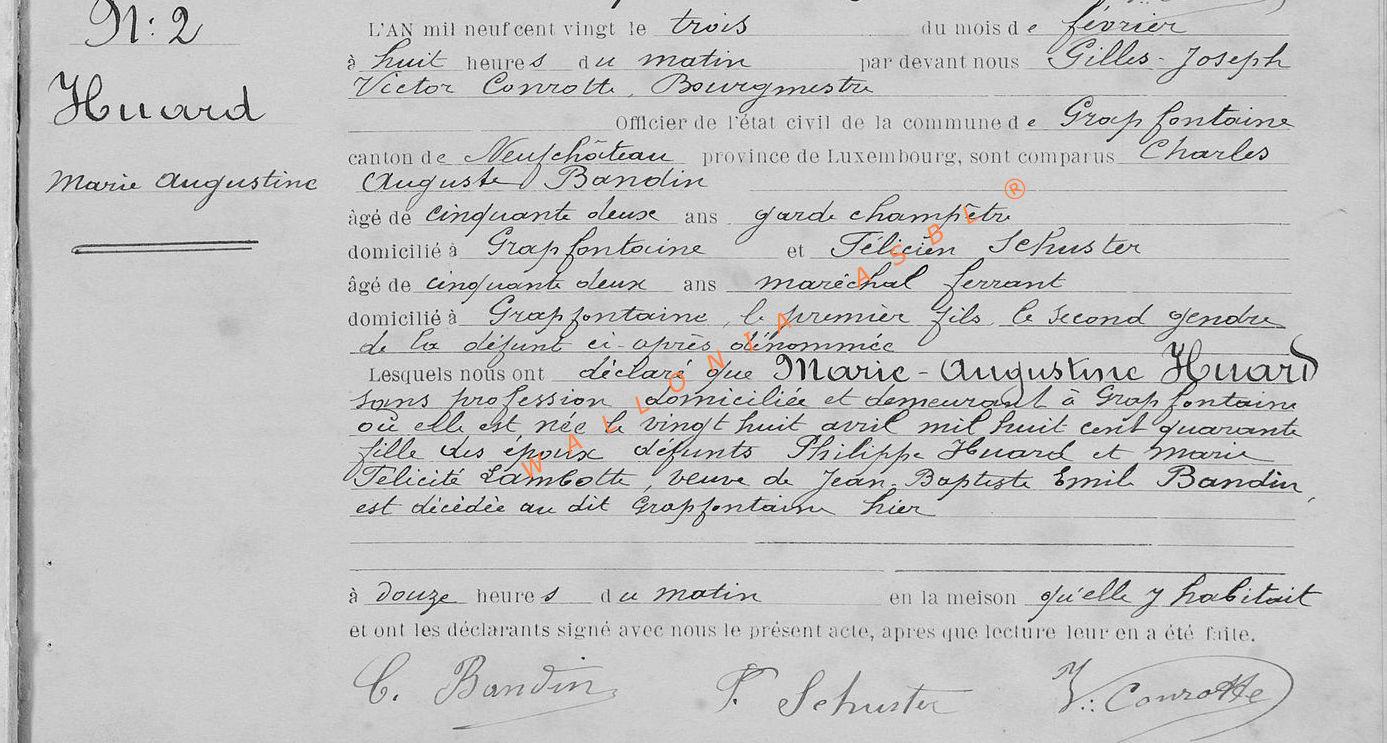 N: 2
Huard
Marie Augustine
L'AN mil neuf cent vingt le trois du mois de février
à huit heures du matin par devant nous Gilles-Joseph
Victor Conrotte, Bourgmestre
Officier de l'état civil de la commune de Grapfontaine
canton de Neufchâteau province de Luxembourg, sont comparus Charles
Auguste Bandin
âgé de cinquante deux ans garde champêtre
domicilié à Grapfontaine et Félicien Schuster
âgé de cinquante deux ans maréchal ferrant
domicilié à Grapfontaine, le premier fils, le second gendre
de la défunt ci-après dénommée
Lesquels nous ont déclaré que Marie-Augustine Huard
sans profession domiciliée et demeurant à Grapfontaine
où elle est née le vingt huit avril mil huit cent quarante
fille des époux défunts Philippe Huard et Marie
Félicité Lambotte, veuve de Jean-Baptiste Emile Bandin,
est décédée au dit Grapfontaine hier
à douze heures du matin en la meison qu'elle y habitait
et ont les déclarants signé avec nous le présent acte, apres que lecture leur en a été faite.
C. Bandin F. Schuster V: Conrotte
WALLONIA ASBL ®